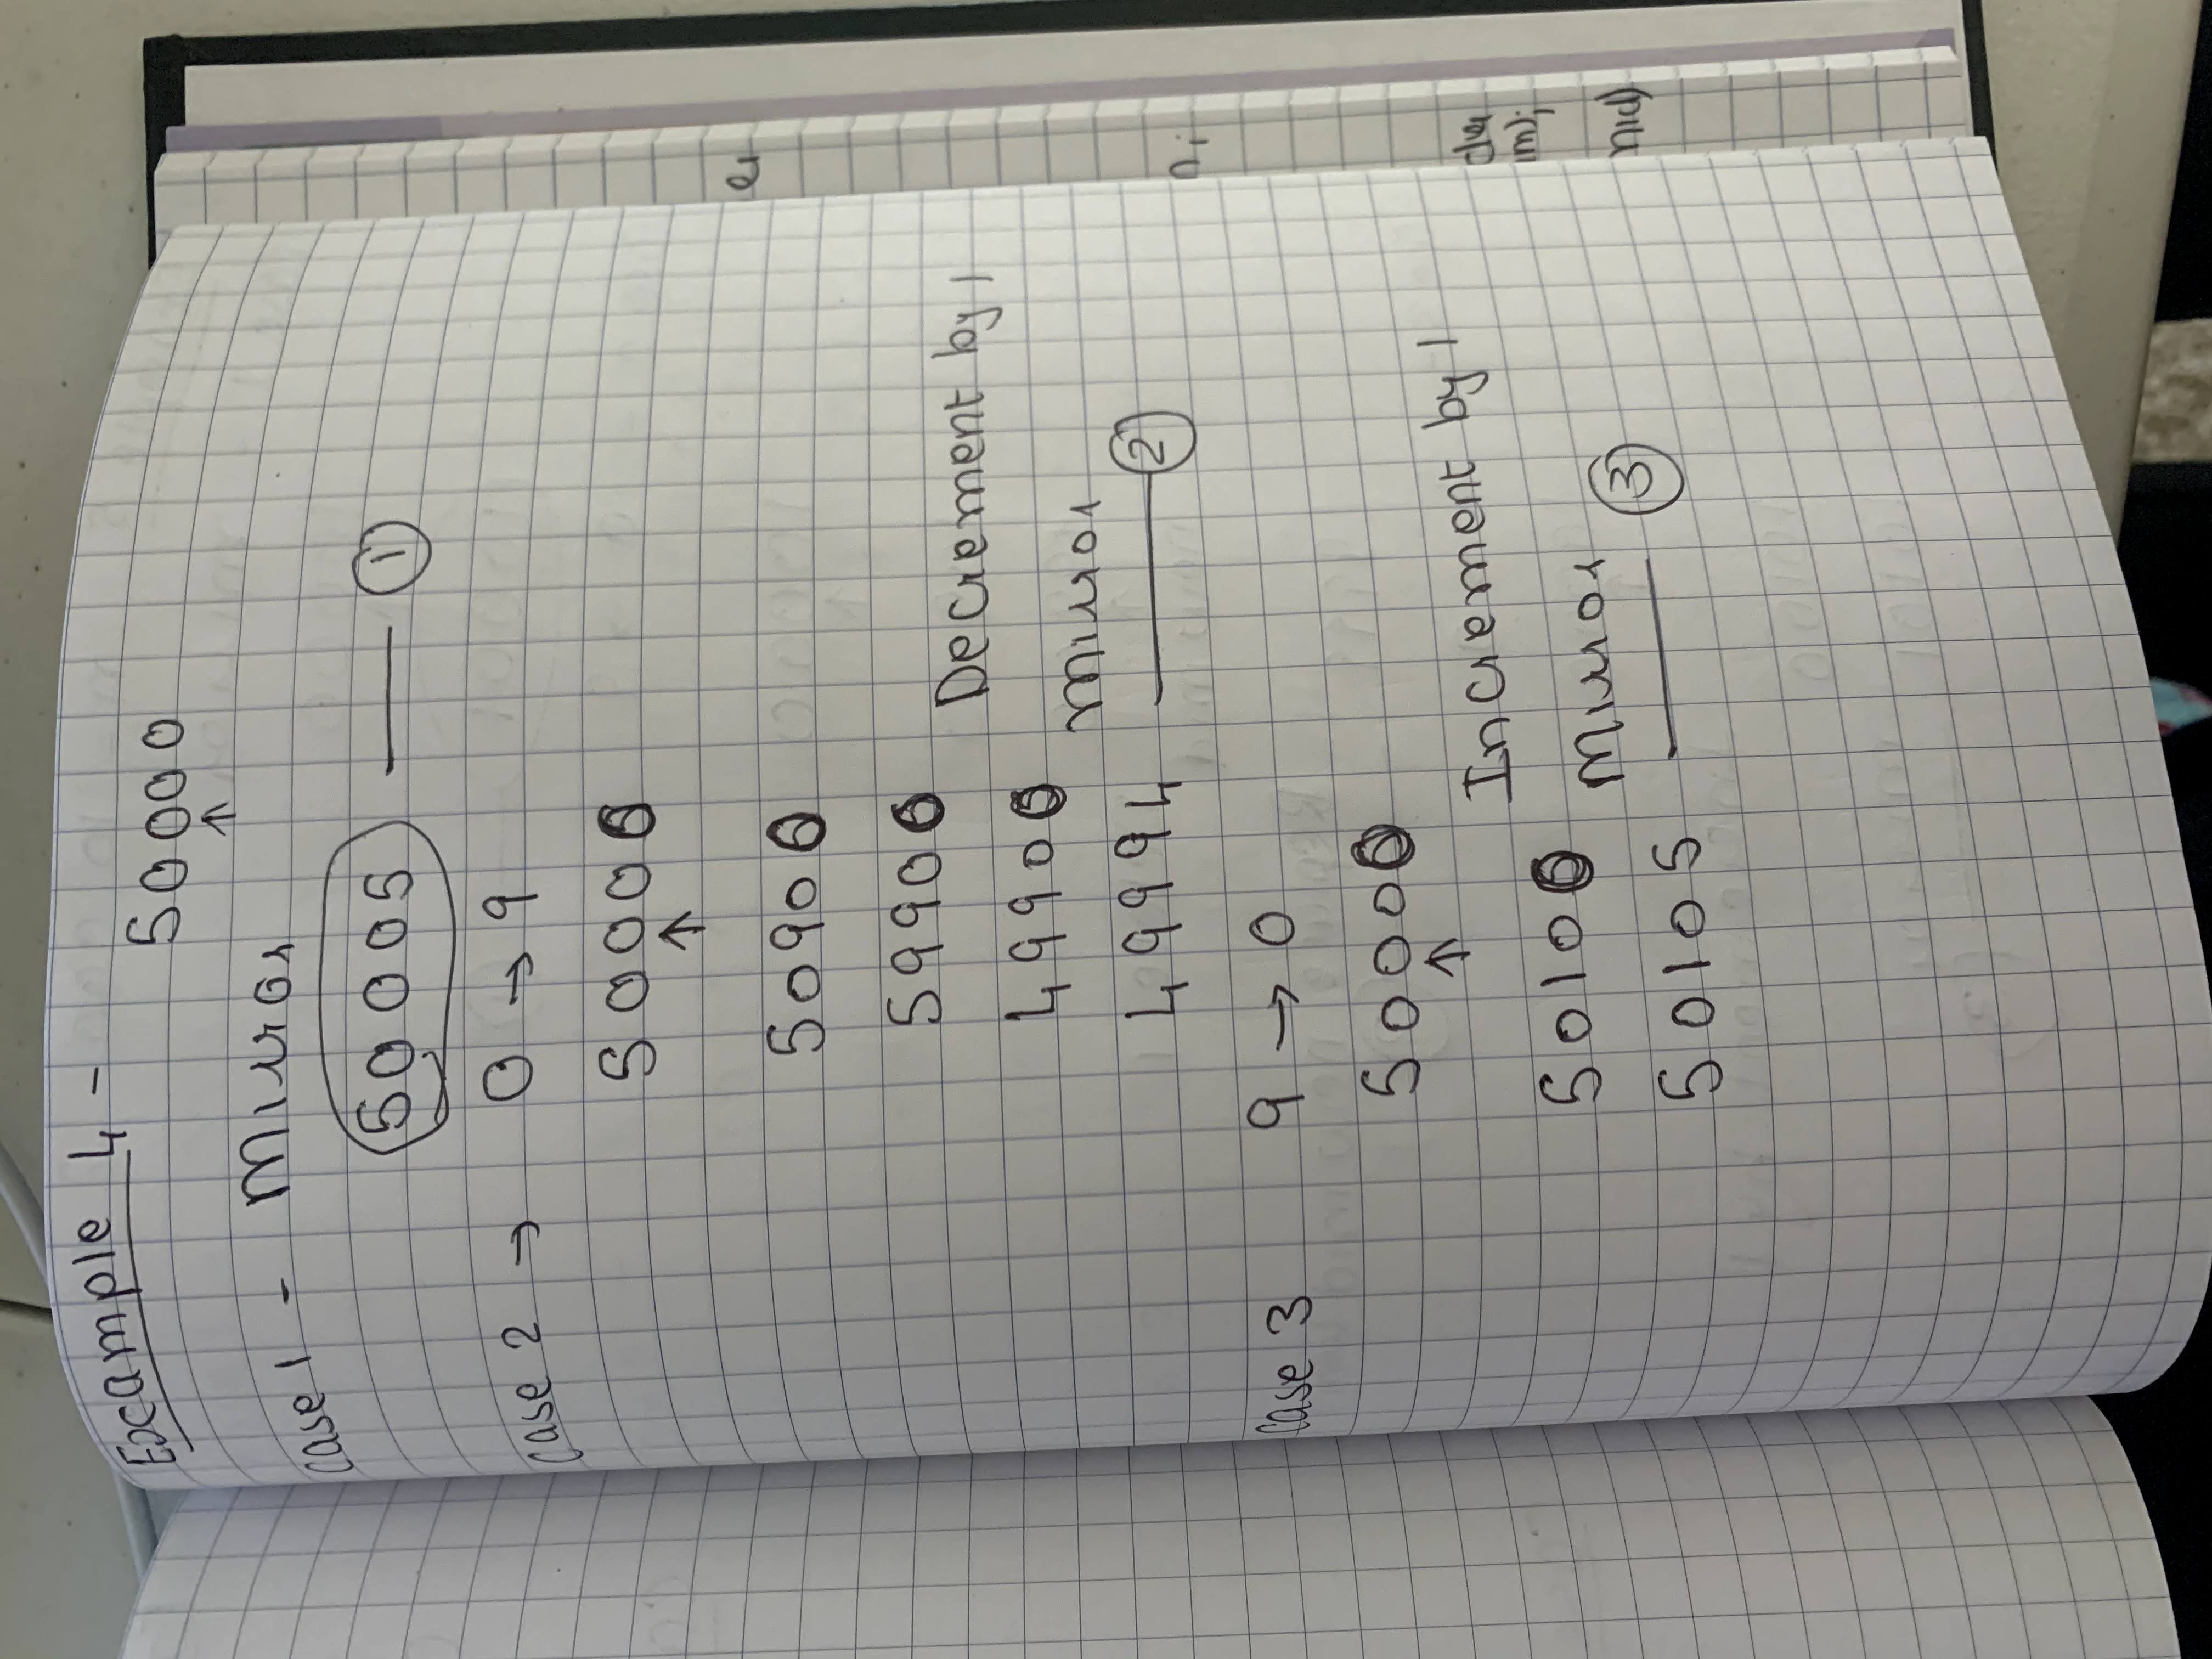 Example 4 -
50000
↑
Case 1 - Mirror
50005 —— ①
Case 2 → 0 → 9
50000
↑
50900
59900
Decrement by 1
49900
Mirror
49994 —— ②
Case 3 9 → 0
50000
↑
Increment by 1
50100
Mirror
50105 —— ③